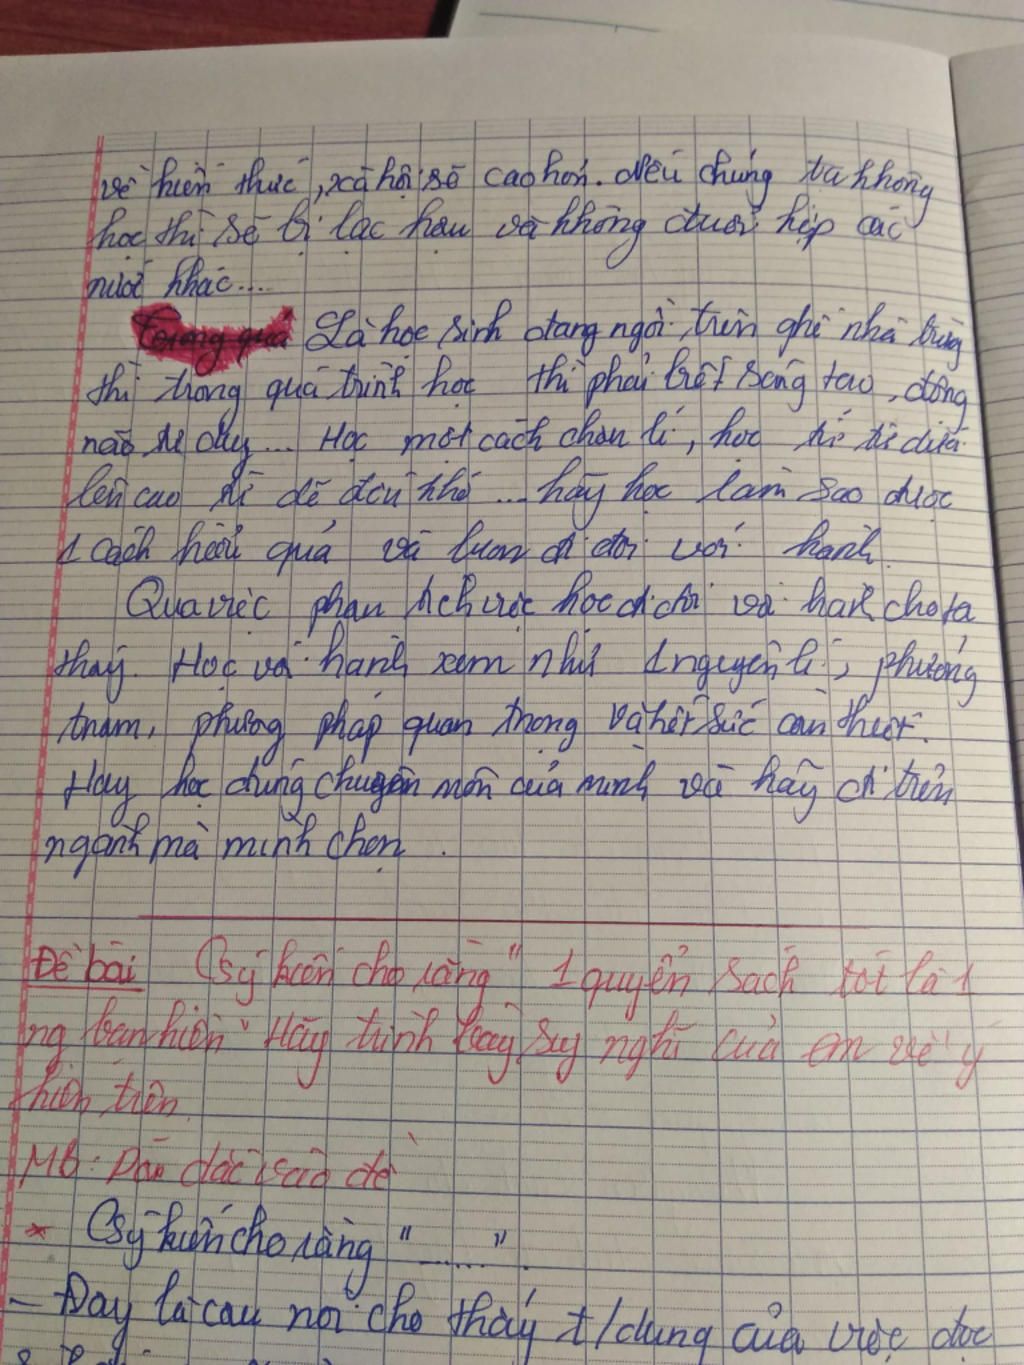 về hiện thực, xã hội sẽ cao hơn. Nếu chúng ta không
học thì sẽ bị lạc hậu và không đuổi kịp các
nước khác....
Trong quá Là học sinh đang ngồi trên ghế nhà trường
thì trong quá trình học thì phải biết sáng tạo, động
não tư duy... Học một cách chân lí, học từ từ
lên cao từ dễ đến khó... hãy học làm sao được
1 cách hiệu quả và luôn đi đôi với hành.
Qua việc phân tích việc học đi đôi với hành cho ta
thấy. Học với hành xem như 1 nguyên lí, phương
châm, phương pháp quan trọng và hết sức cần thiết.
Hãy học đúng chuyên môn của mình và hãy đi trên
ngành mà mình chọn.
Đề bài Có ý kiến cho rằng " 1 quyển sách tốt là 1
ng bạn hiền" Hãy trình bày suy nghĩ của em về ý
kiến trên.
MB: Dẫn dắt vào đề
* Có ý kiến cho rằng "......".
- Đây là câu nói cho thấy t/dụng của việc đọc